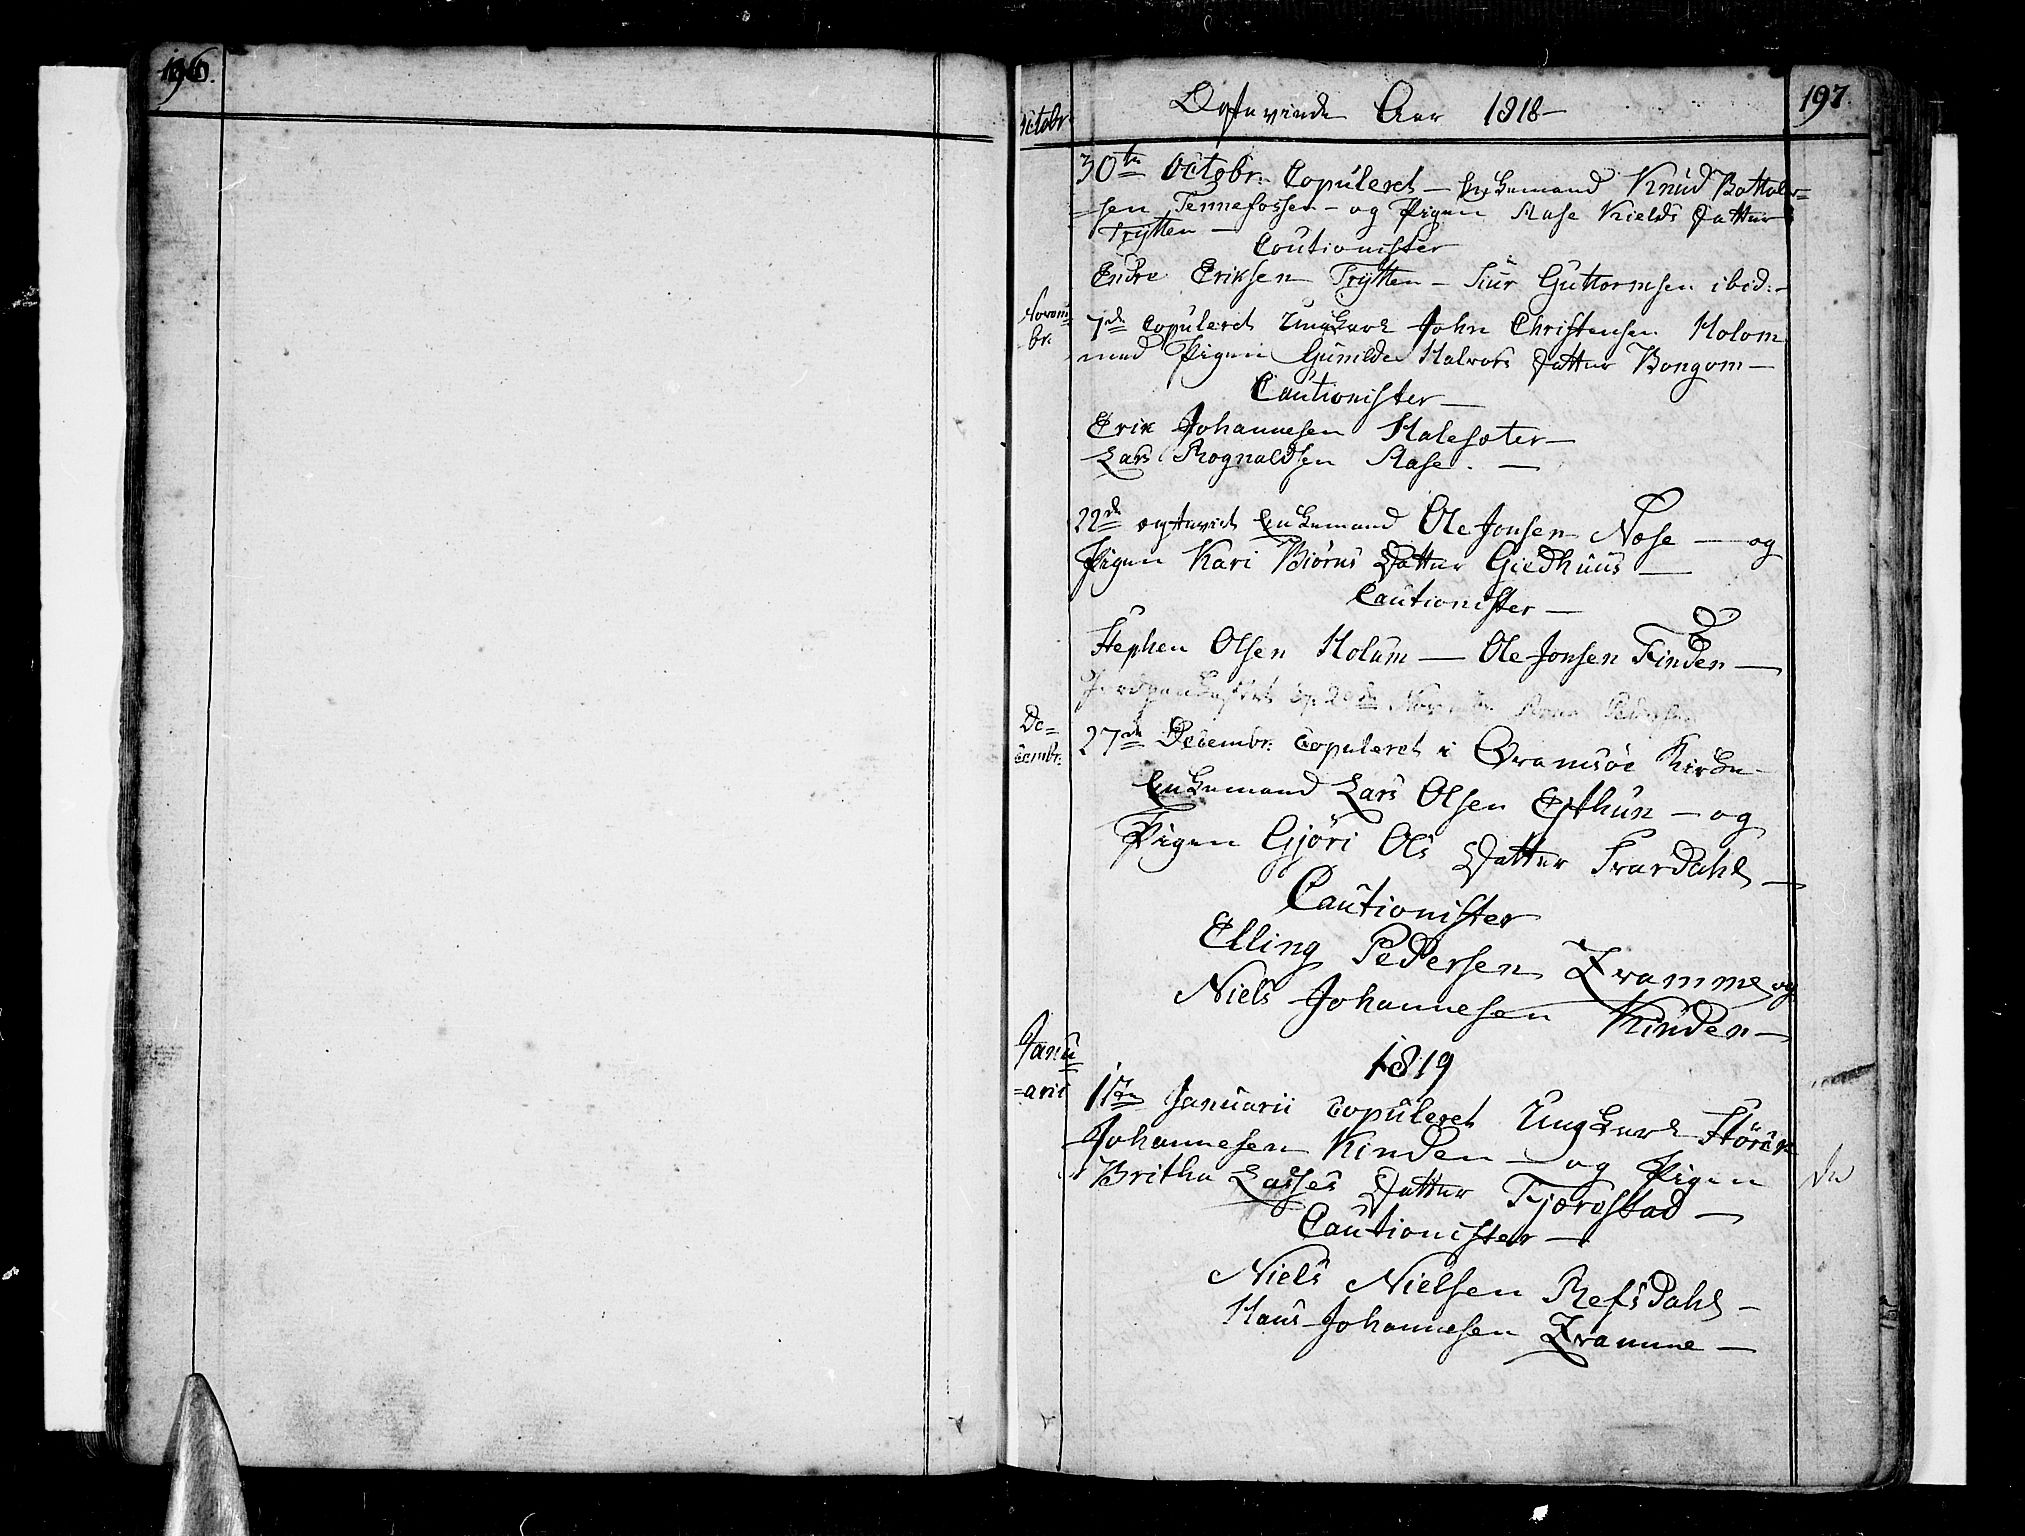 196.
197
Octobr.
Egteviede Aar 1818 —
30te Octobr. Copuleret — Enkemand Knud Bottolv=
=sen Tennefossen — og Pigen Aase Kields Datter
Trytten —
Cautionister
Endre Eriksen Trytten — Siur Guttormsen ibid: —
Novem
br.
1de Copuleret Ungkarl John Christensen Holom
med Pigen Gunilde Halvors Datter Bongom —
Cautionister —
Erik Johannesen Halesæter —
Lars Rognaldsen Aase. —
22de egteviet Enkemand Ole Jonsen Næse — og
Pigen Kari Biörns Datter Giedhuus —
Cautionister —
Stephen Olsen Holum — Ole Jonsen Finden —
De=
cembr:
27de Decembr. Copuleret i Qvamsöe Kirke
Enkemand Lars Olsen Esthun — og
Pigen Gjöri Ols Datter Svardahl —
Cautionister
Elling Pedersen Qvamme og
Niels Johannesen Kinden —
1819
Janu
=arii
1ste Januarii Copuleret Ungkarl Störck
Johannesen Kinden — og Pigen
Britha Lasses Datter Fjærestad —
Cautionister —
Niels Nielsen Refsdahl —
Hans Johannesen Qvamme —